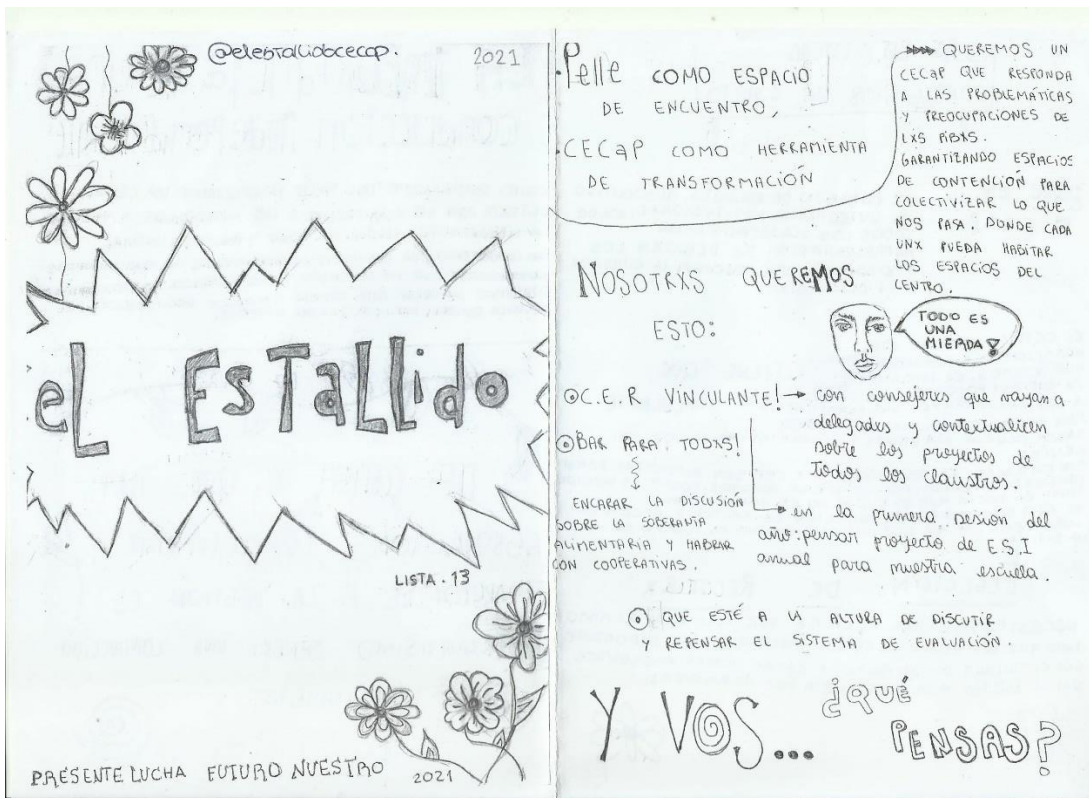 @elestallidocecap.
2021
eL EsTaLLido
LISTA. 13
PRESENTE LUCHA FUTURO NUESTRO
2021
Pelle COMO ESPACIO
DE ENCUENTRO,
CECaP COMO HERRAMIENTA
DE TRANSFORMACIÓN
QUEREMOS UN
CECaP QUE RESPONDA
A LAS PROBLEMÁTICAS
Y PREOCUPACIONES DE
LXS PIBXS.
GARANTIZANDO ESPACIOS
DE CONTENCIÓN PARA
COLECTIVIZAR LO QUE
NOS PASA. DONDE CADA
UNX PUEDA HABITAR
LOS ESPACIOS DEL
CENTRO.
NOSOTRXS QUEREMOS
ESTO:
TODO ES
UNA
MIERDA!
C.E.R VINCULANTE!
con consejeres que vayan a
delegades y contextualicen
sobre los proyectos de
todos los claustros.
en la primera sesión del
año: pensar proyecto de E.S.I
anual para nuestra escuela.
BAR PARA TODXS!
ENCARAR LA DISCUSIÓN
SOBRE LA SOBERANÍA
ALIMENTARIA Y HABLAR
CON COOPERATIVAS.
QUE ESTÉ A LA ALTURA DE DISCUTIR
Y REPENSAR EL SISTEMA DE EVALUACIÓN.
Y VOS... ¿QUÉ
PENSAS?